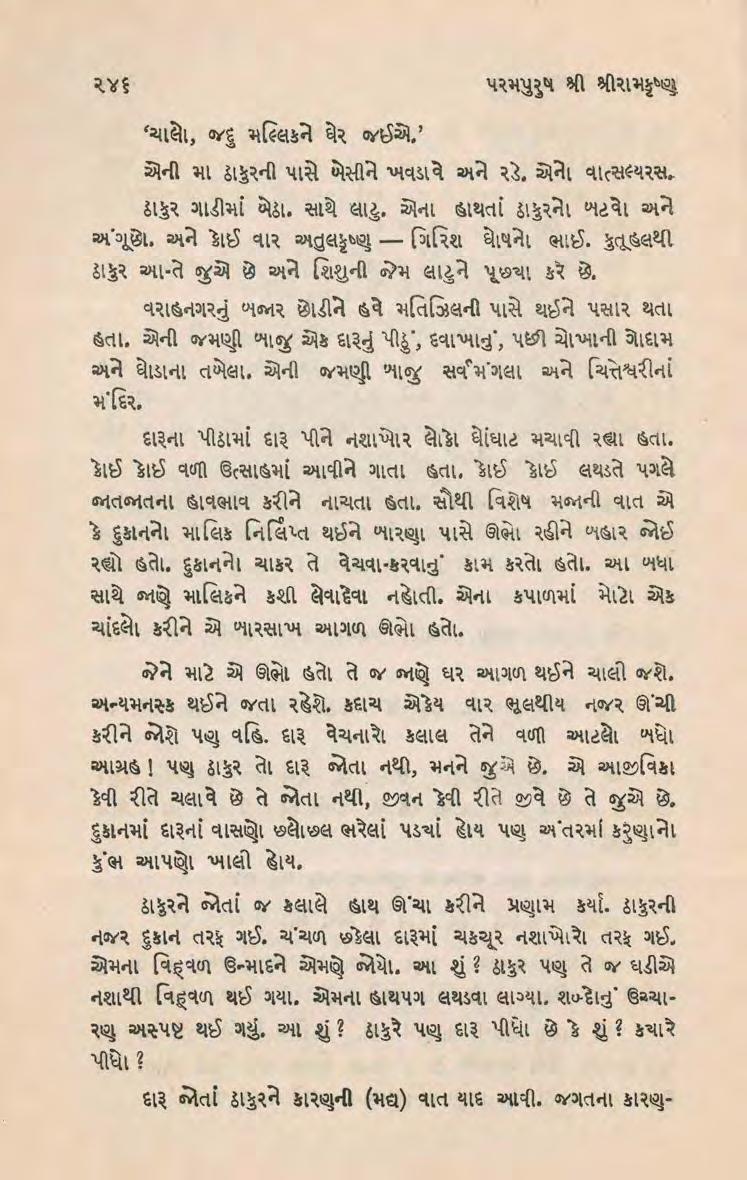 ૨૪૬ પરમપુરુષ શ્રી શ્રીરામકૃષ્ણ
‘ચાલો, જદુ મલ્લિકને ઘેર જઈએ.’
એની મા ઠાકુરની પાસે બેસીને ખવડાવે અને રડે. એનો વાત્સલ્યરસ.
ઠાકુર ગાડીમાં બેઠા. સાથે લાટુ. એના હાથતાં ઠાકુરનો બટવો અને
અંગૂછો. અને કોઈ વાર અતુલકૃષ્ણ — ગિરિશ ઘોષનો ભાઈ. કુતૂહલથી
ઠાકુર આ-તે જુએ છે અને શિશુની જેમ લાટુને પૂછ્યા કરે છે.
વરાહનગરનું બજાર છોડીને હવે મતિઝિલની પાસે થઈને પસાર થતા
હતા. એની જમણી બાજુ એક દારૂનું પીઠું, દવાખાનું, પછી ચોખાની ગોદામ
અને ઘોડાના તબેલા. એની જમણી બાજુ સર્વમંગલા અને ચિત્તેશ્વરીનાં
મંદિર.
દારૂના પીઠામાં દારૂ પીને નશાખોર લોકો ઘોંઘાટ મચાવી રહ્યા હતા.
કોઈ કોઈ વળી ઉત્સાહમાં આવીને ગાતા હતા. કોઈ કોઈ લથડતે પગલે
જાતજાતના હાવભાવ કરીને નાચતા હતા. સૌથી વિશેષ મજાની વાત એ
કે દુકાનનો માલિક નિર્લિપ્ત થઈને બારણા પાસે ઊભો રહીને બહાર જોઈ
રહ્યો હતો. દુકાનનો ચાકર તે વેચવા-કરવાનું કામ કરતો હતો. આ બધા
સાથે જાણે માલિકને કશી લેવાદેવા નહોતી. એના કપાળમાં મોટો એક
ચાંદલો કરીને એ બારસાખ આગળ ઊભો હતો.
જેને માટે એ ઊભો હતો તે જ જાણે ઘર આગળ થઈને ચાલી જશે.
અન્યમનસ્ક થઈને જતા રહેશે. કદાચ એકેય વાર ભૂલથીય નજર ઊંચી
કરીને જોશે પણ વહિ. દારૂ વેચનારો કલાલ તેને વળી આટલો બધો
આગ્રહ ! પણ ઠાકુર તો દારૂ જોતા નથી, મનને જુએ છે. એ આજીવિકા
કેવી રીતે ચલાવે છે તે જોતા નથી, જીવન કેવી રીતે જીવે છે તે જુએ છે.
દુકાનમાં દારૂનાં વાસણો છલોછલ ભરેલાં પડ્યાં હોય પણ અંતરમાં કરુણાનો
કુંભ આપણો ખાલી હોય.
ઠાકુરને જોતાં જ કલાલે હાથ ઊંચા કરીને પ્રણામ કર્યાં. ઠાકુરની
નજર દુકાન તરફ ગઈ. ચંચળ છકેલા દારૂમાં ચકચૂર નશાખોરો તરફ ગઈ.
એમના વિહ્વળ ઉન્માદને એમણે જોયો. આ શું ? ઠાકુર પણ તે જ ઘડીએ
નશાથી વિહ્વળ થઈ ગયા. એમના હાથપગ લથડવા લાગ્યા. શબ્દોનું ઉચ્ચા-
રણ અસ્પષ્ટ થઈ ગયું. આ શું ? ઠાકુરે પણ દારૂ પીધો છે કે શું ? ક્યારે
પીધો ?
દારૂ જોતાં ઠાકુરને કારણની (મદ્ય) વાત યાદ આવી. જગતના કારણ-